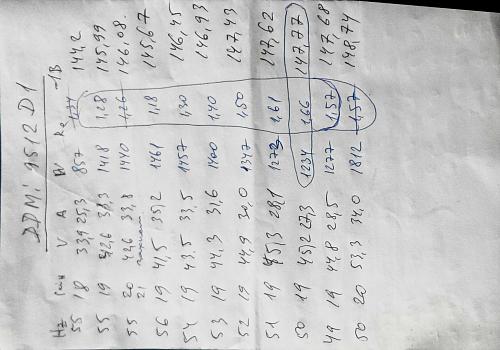 DDMi 9512 D1
Hz V A W -1В
55 18 33,9 25,3 857 144,2
55 19 42,6 33,3 1418 1,28 145,99
55 20 42,6 33,8 1440 1,26 146,08
21
56 19 41,5 35,2 1461 1,18 145,67
54 19 43,5 33,5 1457 1,30 146,45
53 19 44,3 31,6 1400 1,40 146,93
52 19 44,9 30,0 1347 1,50 147,43
51 19 45,3 28,1 1,61 147,62
50 19 45,2 27,3 1234 1,66 147,77
49 19 44,8 28,5 1277 1,57 147,68
50 20 53,3 34,0 1812 1,57 148,74